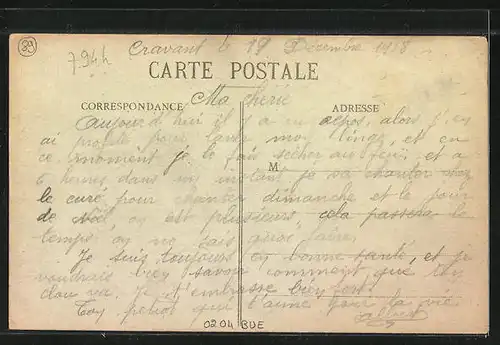 89
7944
Cravant le 19 Décembre 1918
CARTE POSTALE
CORRESPONDANCE
ADRESSE
Ma chérie
Aujourd'hui il y a eu repos, alors j'en
ai profité pour laver mon linge, et en
ce moment je le fais sécher au feu, et a
M
6 heures dans un instant je va chanter chez
le curé pour chanter dimanche et le jour
de Noël, on est plusieurs cela passera le
temps on ne sais quoi faire.
Je suis toujours en bonne santé, et je
voudrais bien savoir comment que
va. Je t'embrasse bien fort
Ton petiot qui t'aime pour la vie
Albert
0204 BDE